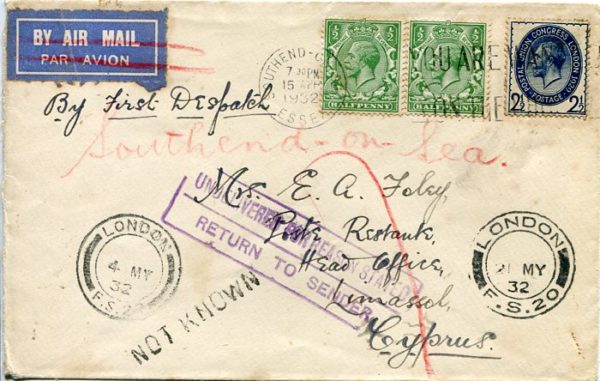 BY AIR MAIL
PAR AVION
½ ½
HALFPENNY
½ ½
HALFPENNY
POSTAL UNION CONGRESS LONDON 1929
POSTAGE
2½ 2½
SOUTHEND-O
7 30PM
15 AP
1932
ESSEX
YOU ARE W
ON THE
By First Despatch
Southend-on-Sea.
Mrs. E. A. Foley,
Poste Restante,
Head Office,
Limassol,
Cyprus.
UNDELIVERED FOR REASON STATED
RETURN TO SENDER
LONDON
4 MY
32
F.S.20
NOT KNOWN
LONDON
21 MY
32
F.S.20